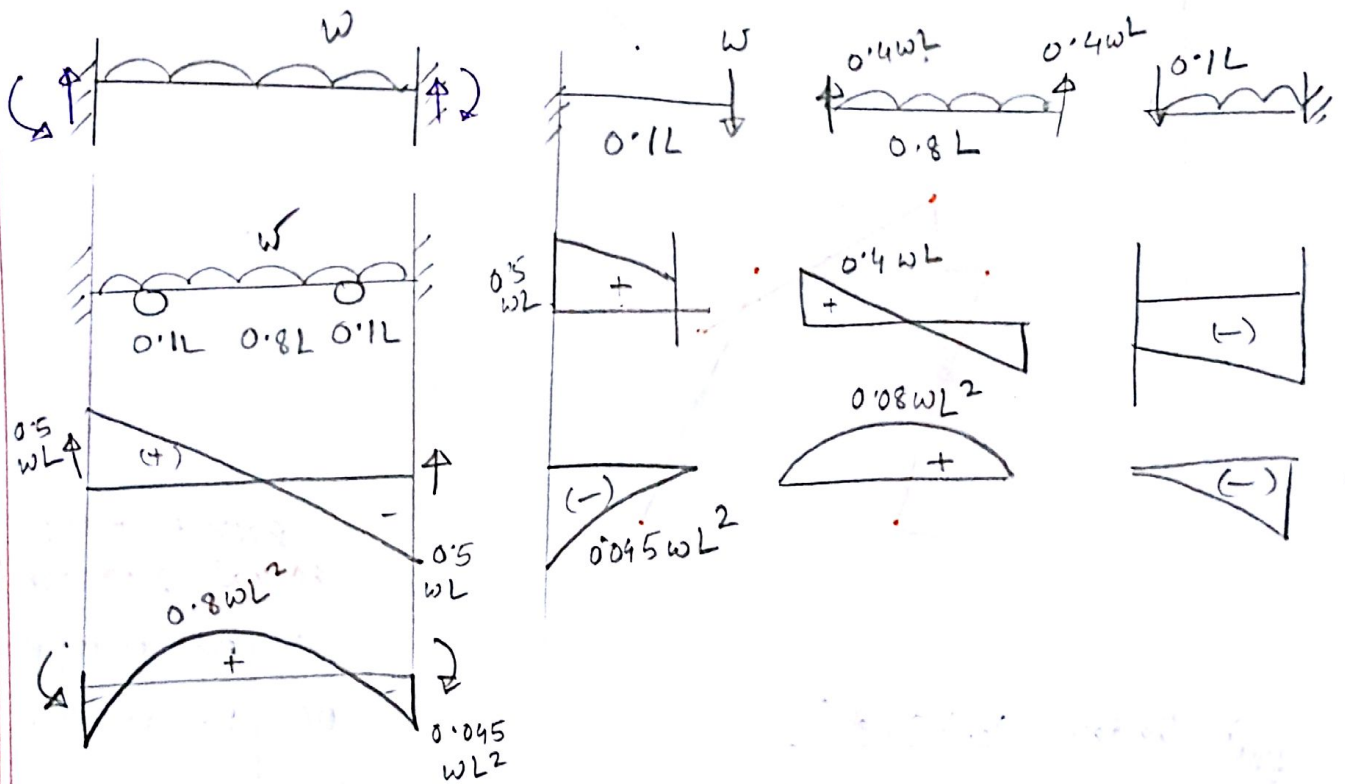 w
w
0.4wL
0.4wL
0.1L
0.1L
0.8L
w
0.1L 0.8L 0.1L
0.5
wL
+
0.4wL
+
(-)
0.5
wL
(+)
-
0.5
wL
(-)
0.045wL2
0.08wL2
+
(-)
0.8wL2
+
0.045
wL2